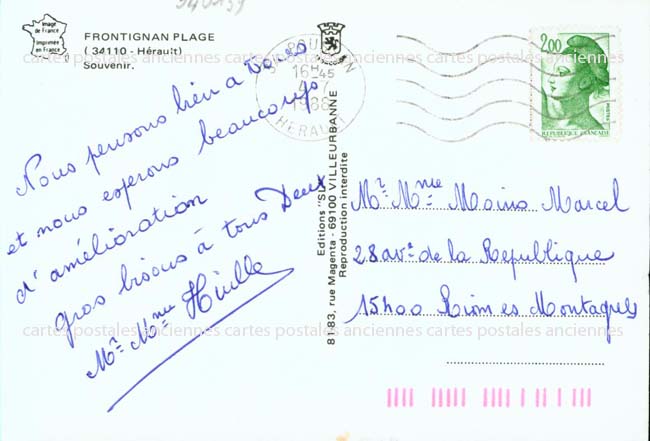 Image
de France
Imprimée
en France
FRONTIGNAN PLAGE
( 34110 - Hérault)
Souvenir.
Nous pensons bien a vous
et nous esperons beaucoup
d'amélioration
gros bisous à tous Deux
Mr. Mme
16 45
4-7
1988
HERAULT
2,00
REPUBLIQUE FRANÇAISE
Editions
81-83, rue Magenta - 69100 VILLEURBANNE
Reproduction interdite
Mr. Mme Moins Marcel
28 ave de la Republique
15h00 Riom es Montagnes
cartes postales anciennes cartes postales anciennes cartes postales anciennes
cartes postales anciennes cartes postales anciennes cartes postales anciennes